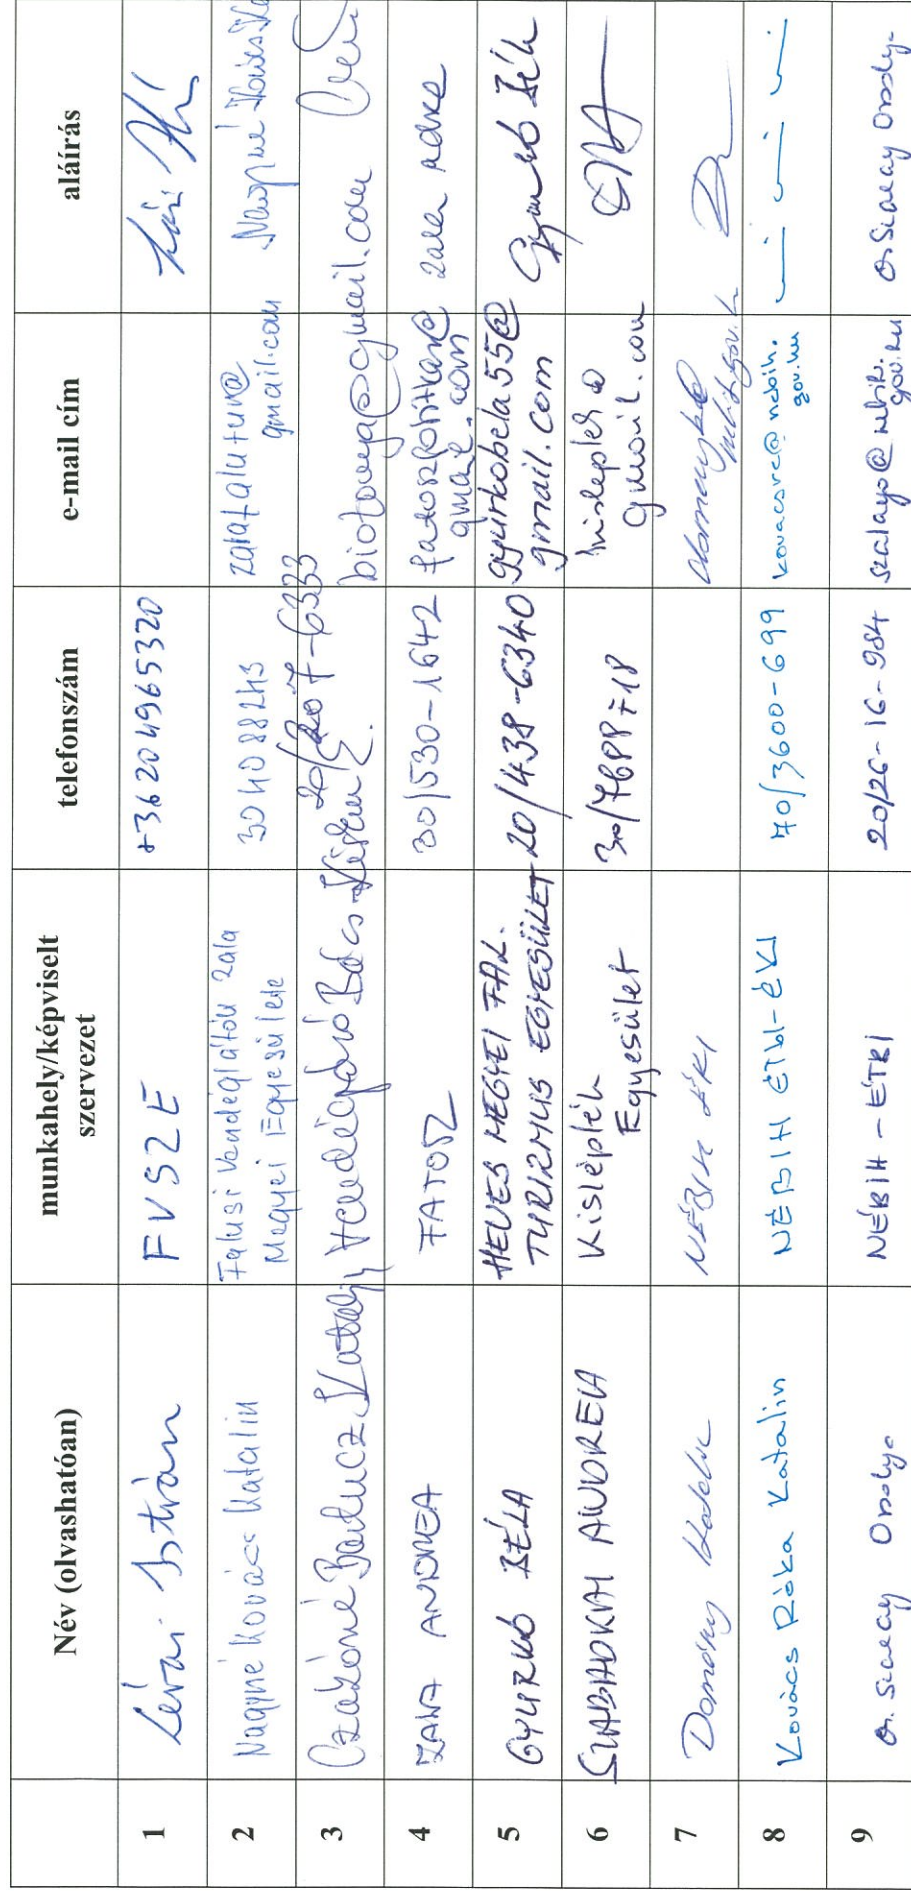 Név (olvashatóan) munkahely/képviselt szervezet telefonszám e-mail cím aláírás
1 Lévai István FVSZE +36204965320
2 Nagyné Kovács Katalin Falusi Vendéglátók Zala
Megyei Egyesülete 304088243 zalafalutur@
gmail.com Nagyné Kovács
3 Czakóné Katalin Vendégváró Bács-Kiskun 20/207-6333
@gmail.com
4 ZANA ANDREA FATOSZ 30/530-1642 fatosztitkar@
gmail.com Zana Andrea
5 GYURKÓ BÉLA HEVES MEGYEI FAL.
TURIZMUS EGYESÜLET 20/438-6340 gyurkobela55@
gmail.com Gyurkó Béla
6 SZABADKAI ANDREA Kislépték
Egyesület 30/7688718 kisleptek@
gmail.com
7 Domány Katalin NÉBIH ÉKI
8 Kovács Réka Katalin NÉBIH ÉTbI-ÉVI 70/3600-699 kovacsre@nebih.
gov.hu
9 dr. Szalay Orsolya NÉBIH - ÉTBI 20/26-16-984 szalayo@nebih.
gov.hu dr Szalay Orsolya